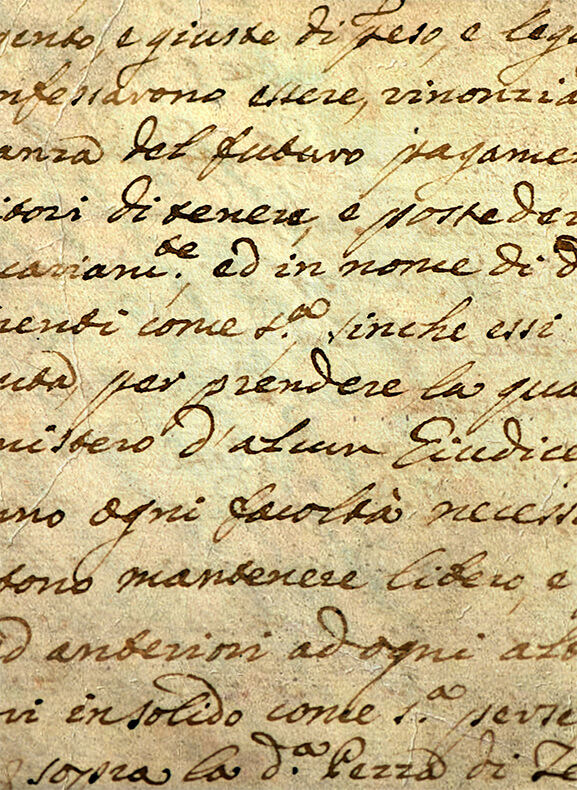 gento, e giuste di Peso, e lega
nfessarono essere, rinonzia
anza del futuro pagamen
itori di tenere, e posseder
cariam.te ed in nome di d
nenti come s.a sinche essi
uta per prendere la qua
nistero d'alcun Giudice
nno ogni facoltà necess
tono mantenere libero, e
d anteriori ad ogni alt
ri in solido come s.a perso
sopra la d.a Pezza di Te